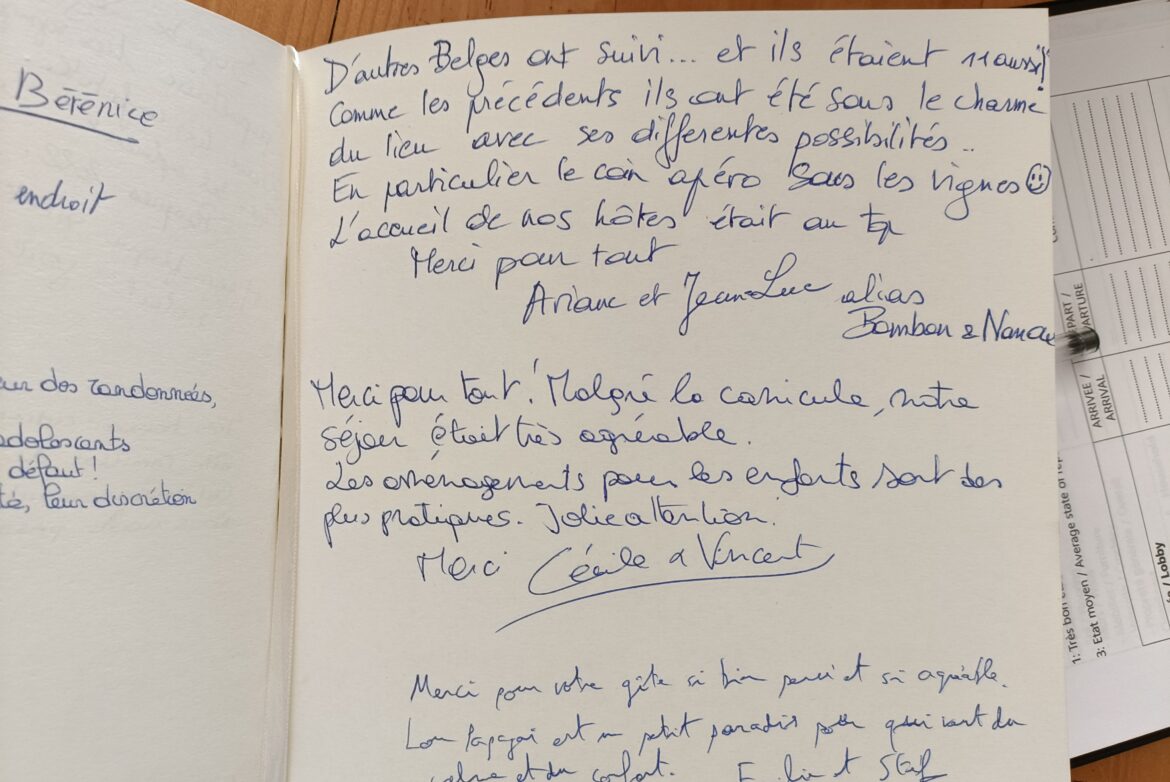 Bérénice
endroit
eur des randonnées,
adolescants
défaut !
té, leur discrétion
D'autres Belges ont suivi... et ils étaient 11 aussi!
Comme les précédents ils ont été sous le charme
du lieu avec ses differentes possibilités..
En particulier le coin apéro sous les vignes ☺
L'accueil de nos hôtes était au top
Merci pour tout
Ariane et Jean-Luc alias
Bombon & Nanou
Merci pour tout! Malgré la canicule, notre
séjour était très agréable.
Les aménagements pour les enfants sont des
plus pratiques. Jolie attention!
Merci Cécile & Vincent
Merci pour votre gîte si bien pensé et si agréable.
Lou Papagai est un petit paradis pour qui vient du
calme et du confort. et Stef
PART /
ARTURE
ARRIVEE /
ARRIVAL
1: Très bon
3: Etat moyen / Average state of rep
/ Lobby